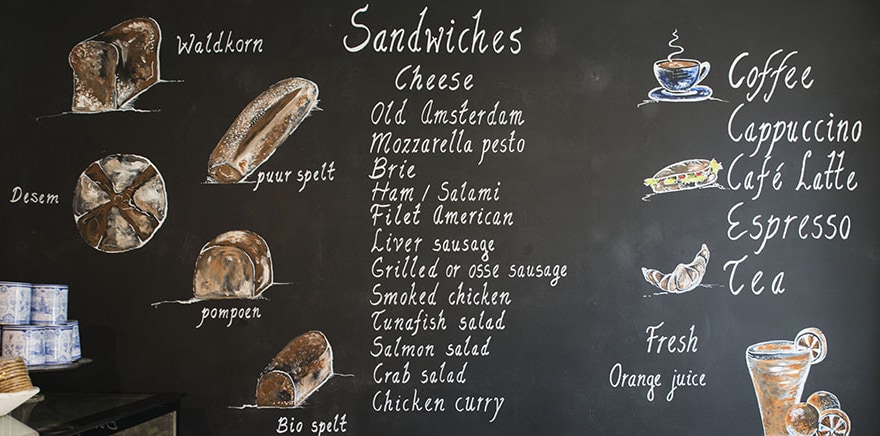 Waldkorn
puur spelt
Desem
pompoen
Bio spelt
Sandwiches
Cheese
Old Amsterdam
Mozzarella pesto
Brie
Ham / Salami
Filet American
Liver sausage
Grilled or osse sausage
Smoked chicken
Tunafish salad
Salmon salad
Crab salad
Chicken curry
Coffee
Cappuccino
Café Latte
Espresso
Tea
Fresh
Orange juice